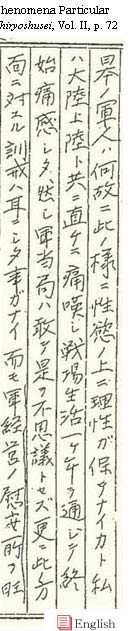 henomena Particular
hiryoshusei, Vol. II, p. 72
畢ノ軍人ハ何故ニ此ノ様ニ性慾ノ上ニ理性ガ保テナイカト私
ハ大陸上陸ト共ニ直チニ痛嘆シ戦場生活一ケ年ヲ通ジテ終
始痛感シタ、然シ軍当局ハ敢テ是ヲ不思議トセズ更ニ此ノ方
面ニ対スル訓戒ハ耳ニシタ事ガナイ 而モ軍経営ノ慰安所ヲ旺
English